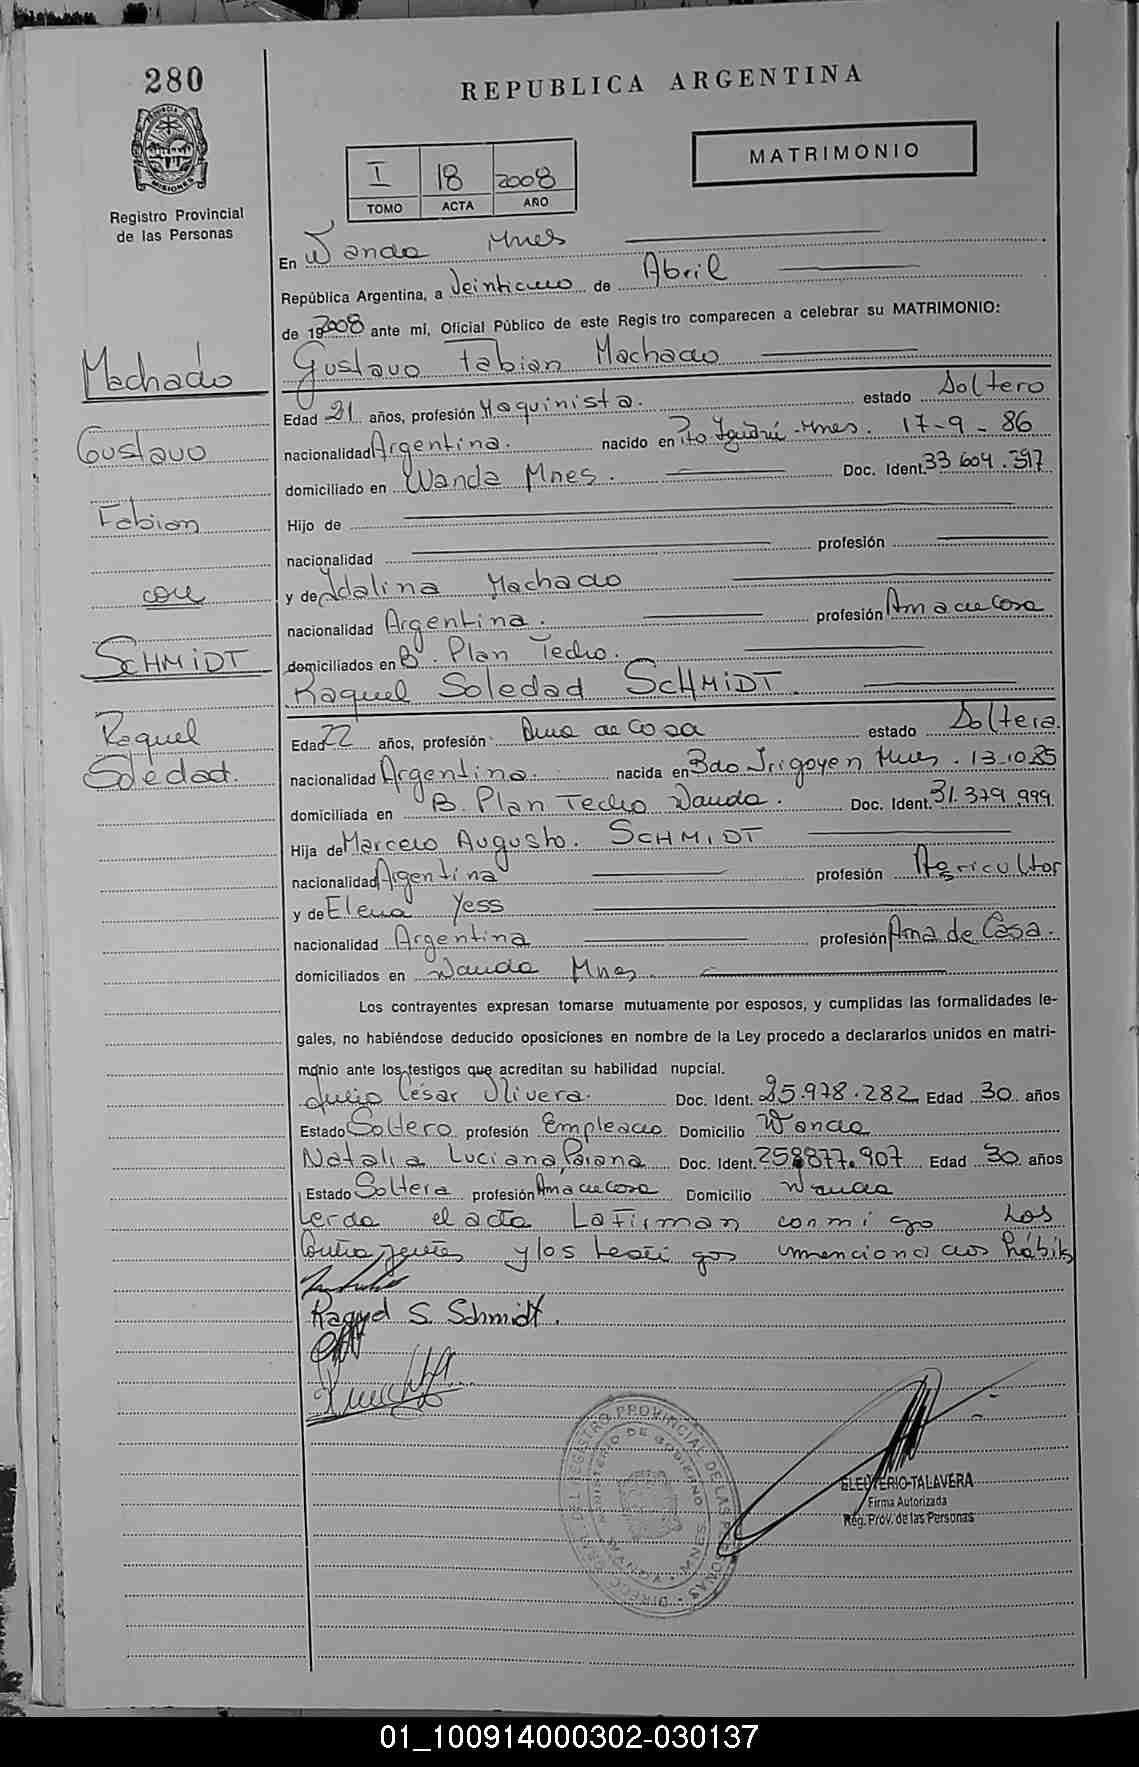 280
REPUBLICA ARGENTINA
MATRIMONIO
I 18 2008
TOMO ACTA AÑO
PROVINCIA DE MISIONES
Registro Provincial
de las Personas
En Wanda Mnes
República Argentina, a Veinticuco de Abril
de 192008 ante mi, Oficial Público de este Registro comparecen a celebrar su MATRIMONIO:
Machado
Gustavo Fabian Machado
Edad 21 años, profesión Maquinista. estado Soltero
Gustavo
nacionalidad Argentina. nacido en Pto Iguazú - Mnes. 17-9-86
domiciliado en Wanda Mnes. Doc. Ident. 33 604.397
Fabian
Hijo de
nacionalidad profesión
con
y de Idalina Machado
nacionalidad Argentina. profesión Ama de Casa
SCHMIDT
domiciliados en B. Plan Techo.
Raquel Soledad SCHMIDT.
Raquel
Edad 22 años, profesión Ama de Casa estado Soltera.
Soledad.
nacionalidad Argentina. nacida en Bdo Irigoyen Mnes. 13.10.85
domiciliada en B. Plan Techo Wanda. Doc. Ident. 31.379.999
Hija de Marcelo Augusto. SCHMIDT
nacionalidad Argentina profesión Agricultor
y de Elena Yess
nacionalidad Argentina profesión Ama de Casa.
domiciliados en Wanda Mnes.
Los contrayentes expresan tomarse mutuamente por esposos, y cumplidas las formalidades le-
gales, no habiéndose deducido oposiciones en nombre de la Ley procedo a declararlos unidos en matri-
monio ante los testigos que acreditan su habilidad nupcial.
Julio César Olivera. Doc. Ident. 25.978.282 Edad 30 años
Estado Soltero profesión Empleado Domicilio Wanda
Natalia Luciana Paiana Doc. Ident. 25.877.907 Edad 30 años
Estado Soltera profesión Ama de Casa Domicilio Wanda
Leida el acta La Firman conmigo Los
Contrayentes y los testigos mencionados hábiles
Raquel S. Schmidt.
DIRECC. GRAL. DEL REGISTRO PROVINCIAL DE LAS PERSONAS
MINISTERIO DE GOBIERNO
WANDA - MNES
ELEUTERIO TALAVERA
Firma Autorizada
Reg. Prov. de las Personas
01_100914000302-030137